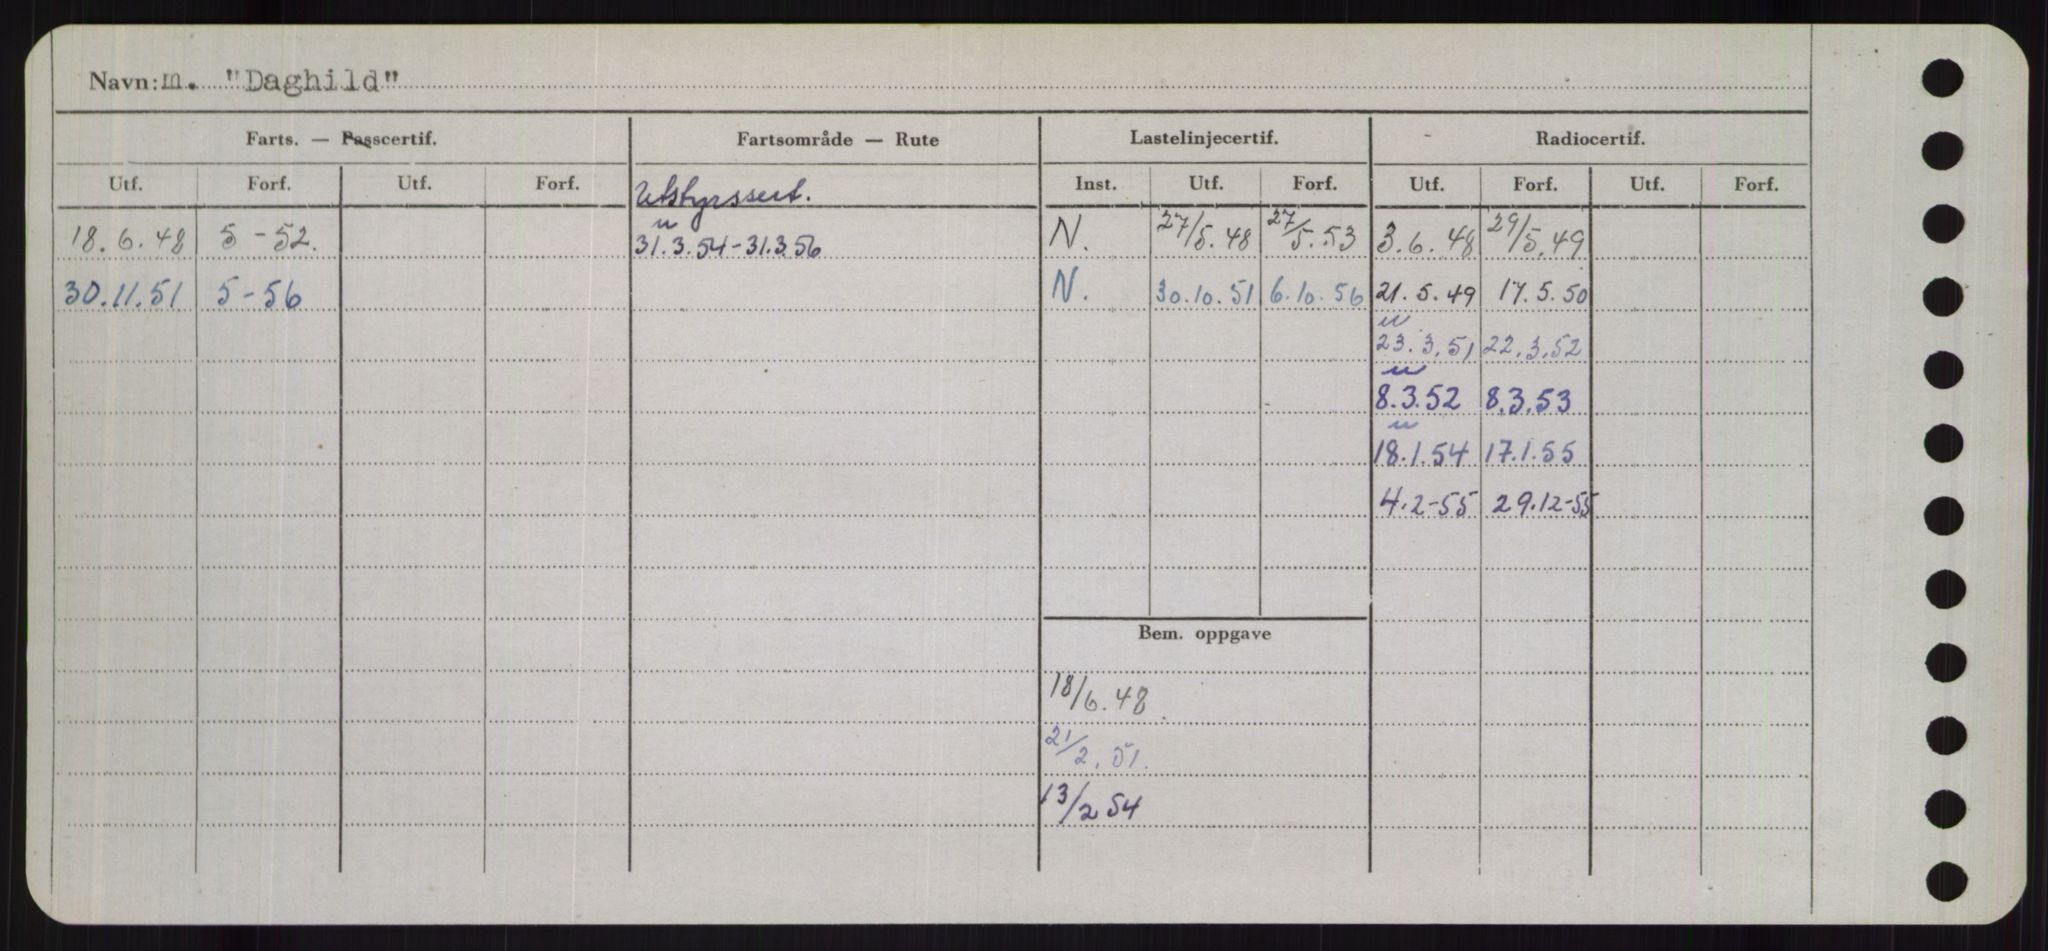 Navn: m. "Daghild"
Farts. — Passcertif. Fartsområde — Rute Lastelinjecertif. Radiocertif.
Utf. Forf. Utf. Forf. Utstyrssert. Inst. Utf. Forf. Utf. Forf. Utf. Forf.
18.6.48 5-52. 31.3.54-31.3.56 N. 27/5.48 27/5.53 3.6.48 29/5.49
30.11.51 5-56 N. 30.10.51 6.10.56 21.5.49 17.5.50
23.3.51 22.3.52
8.3.52 8.3.53
18.1.54 17.1.55
4.2-55 29.12-55
Bem. oppgave
18/6.48
21/2.51.
13/2 54